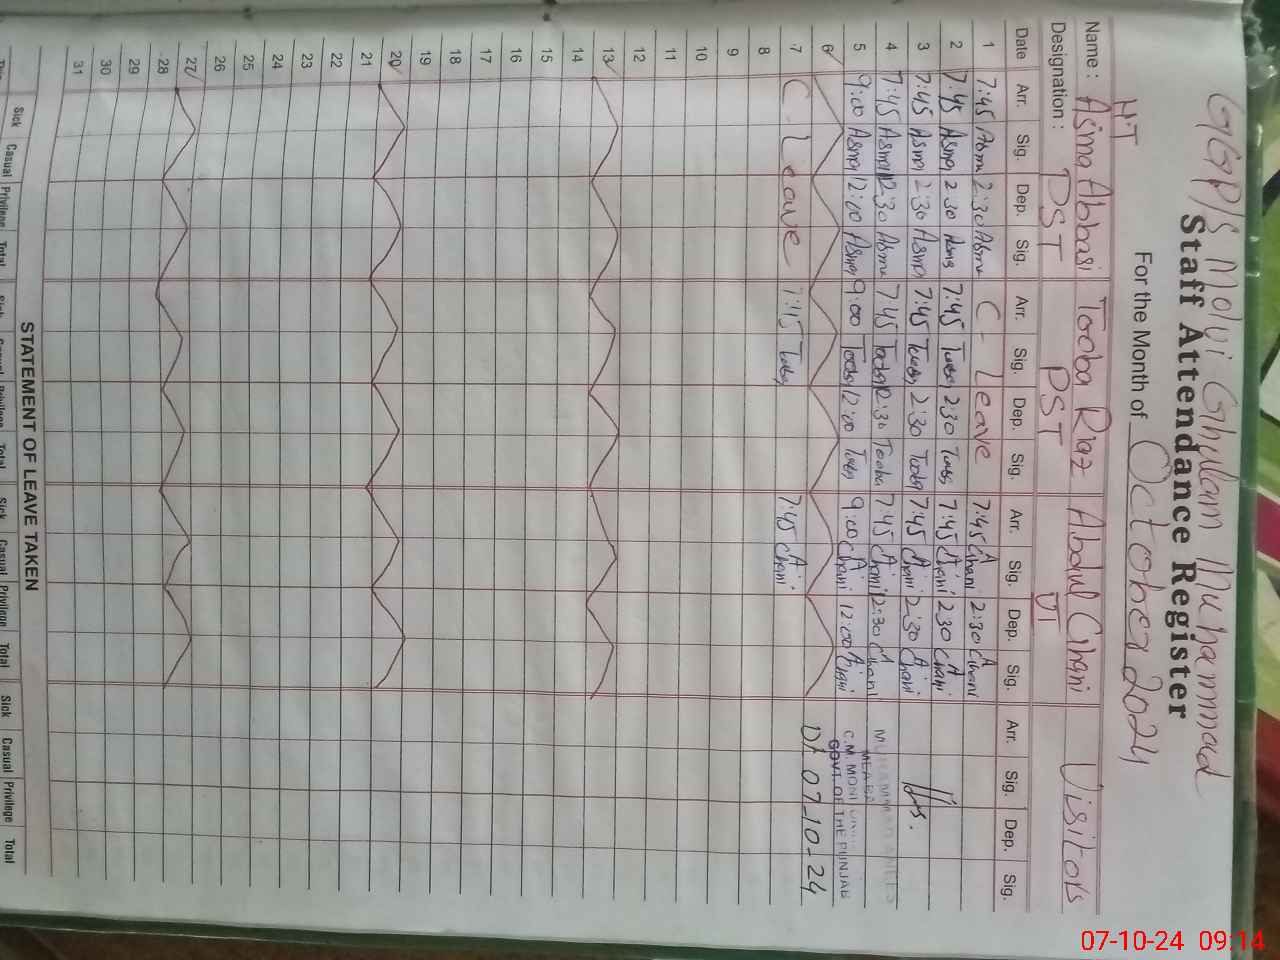 GGP/S Molvi Ghulam Muhammad
Staff Attendance Register
For the Month of October 2024
HT
Name: Asma Abbasi Tooba Riaz Abdul Ghani Visitors
Designation: PST PST
Date Arr. Sig. Dep. Sig. Arr. Sig. Dep. Sig. Arr. Sig. Dep. Sig. Arr. Sig. Dep. Sig.
1 7:45 Asma 2:30 Asma C- Leave 7:45 A Ghani 2:30 A Ghani
2 7:45 Asma 2:30 Asma 7:45 Tooba 2:30 Tooba 7:45 A Ghani 2:30 A Ghani
3 7:45 Asma 2:30 Asma 7:45 Tooba 2:30 Tooba 7:45 A Ghani 2:30 A Ghani
4 7:45 Asma 12:30 Asma 7:45 Tooba 12:30 Tooba 7:45 A Ghani 12:30 A Ghani
5 9:00 Asma 12:00 Asma 9:00 Tooba 12:00 Tooba 9:00 A Ghani 12:00 A Ghani
GOVT. OF THE PUNJAB
6
7 C. Leave 7:45 Tooba 7:45 A Ghani Dt 07-10-24
8
9
10
11
12
13
14
15
16
17
18
19
20
21
22
23
24
25
26
27
28
29
30
31
STATEMENT OF LEAVE TAKEN
Sick Casual Privilege Total Sick Casual Privilege Total Sick Casual Privilege Total Sick Casual Privilege Total
07-10-24 09:14